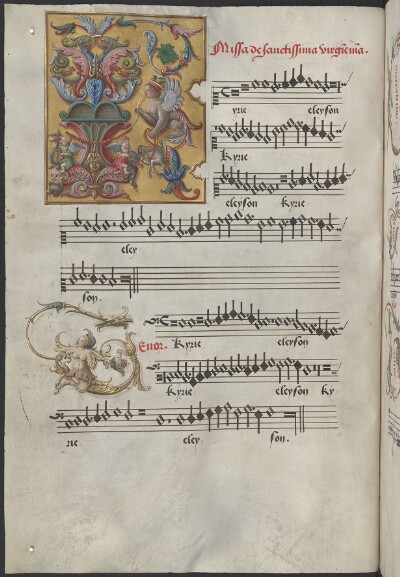 Missa de sanctissima virgine maria.
yrie eleyson
Kyrie
eleyson Kyrie
eley
son.
Tenor. Kyrie eleyson
Kyrie eleyson Ky
rie eley son.